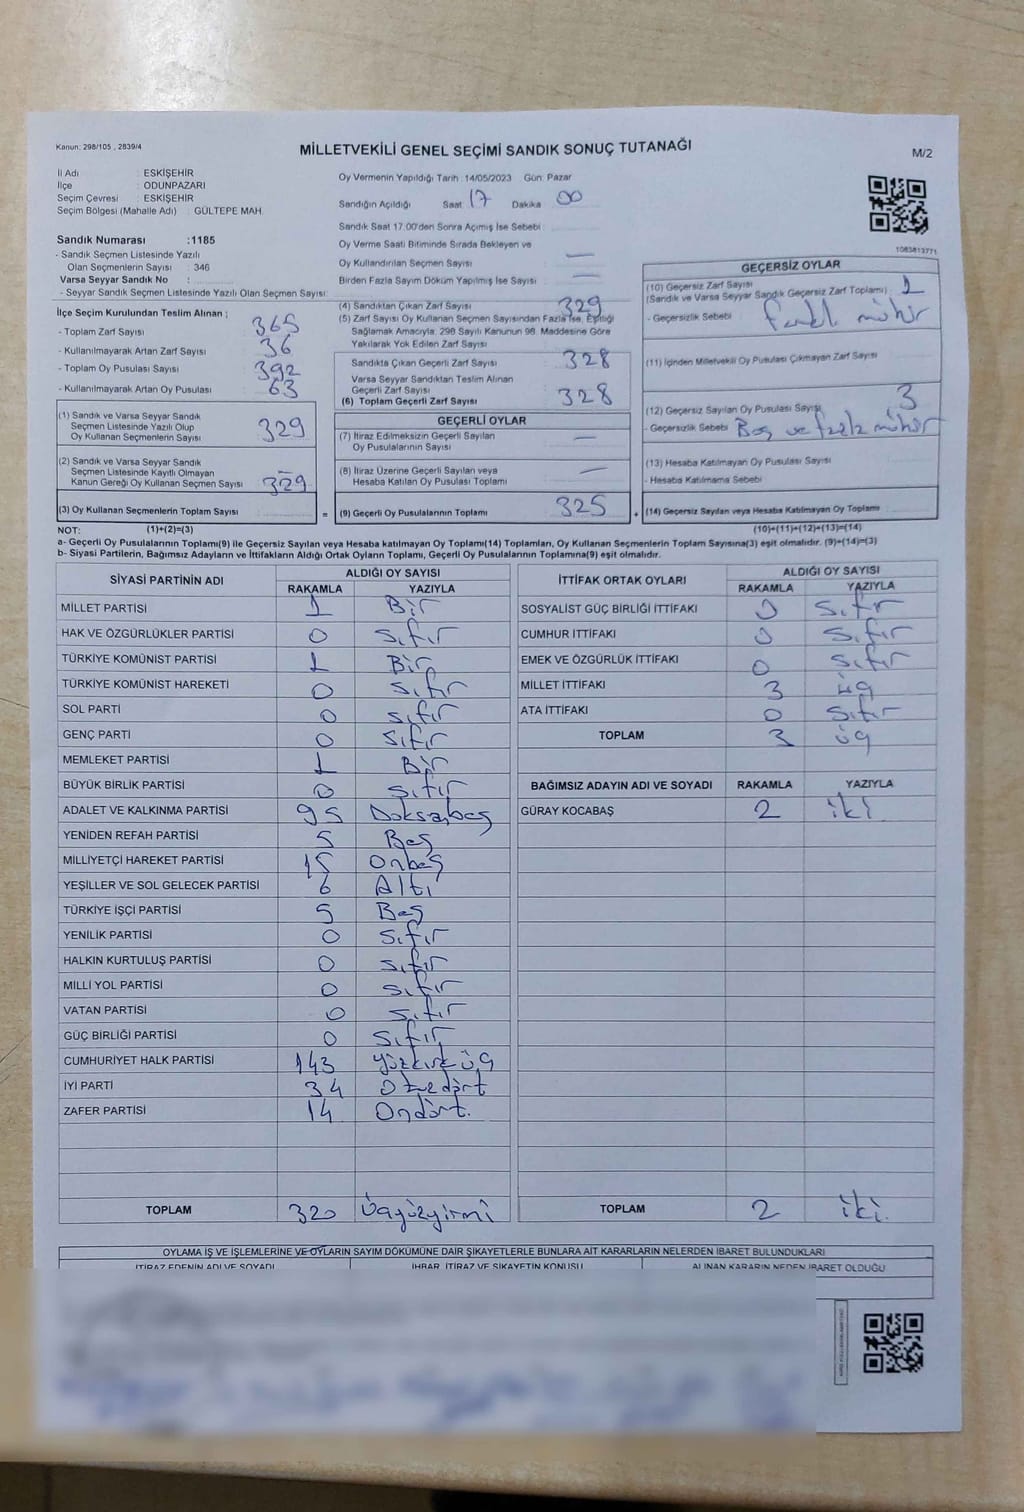 Kanun: 298/105 , 2839/4
MİLLETVEKİLİ GENEL SEÇİMİ SANDIK SONUÇ TUTANAĞI
M/2
İl Adı : ESKİŞEHİR
İlçe : ODUNPAZARI
Seçim Çevresi : ESKİŞEHİR
Seçim Bölgesi (Mahalle Adı) : GÜLTEPE MAH.
Sandık Numarası :1185
- Sandık Seçmen Listesinde Yazılı
Olan Seçmenlerin Sayısı : 346
Varsa Seyyar Sandık No :
- Seyyar Sandık Seçmen Listesinde Yazılı Olan Seçmen Sayısı:
Oy Vermenin Yapıldığı Tarih :14/05/2023 Gün: Pazar
Sandığın Açıldığı Saat 17 Dakika 00
Sandık Saat 17.00'den Sonra Açımış İse Sebebi
Oy Verme Saati Bitiminde Sırada Bekleyen ve
Oy Kullandırılan Seçmen Sayısı —
Birden Fazla Sayım Döküm Yapılmış İse Sayısı —
1083813771
İlçe Seçim Kurulundan Teslim Alınan ;
- Toplam Zarf Sayısı 365
- Kullanılmayarak Artan Zarf Sayısı 36
- Toplam Oy Pusulası Sayısı 392
- Kullanılmayarak Artan Oy Pusulası 63
(1) Sandık ve Varsa Seyyar Sandık
Seçmen Listesinde Yazılı Olup
Oy Kullanan Seçmenlerin Sayısı 329
(2) Sandık ve Varsa Seyyar Sandık
Seçmen Listesinde Kayıtlı Olmayan
Kanun Gereği Oy Kullanan Seçmen Sayısı —
(3) Oy Kullanan Seçmenlerin Toplam Sayısı 329 =
(4) Sandıktan Çıkan Zarf Sayısı 329
(5) Zarf Sayısı Oy Kullanan Seçmen Sayısından Fazla İse, Eşitliği
Sağlamak Amacıyla, 298 Sayılı Kanunun 98. Maddesine Göre
Yakılarak Yok Edilen Zarf Sayısı
Sandıkta Çıkan Geçerli Zarf Sayısı 328
Varsa Seyyar Sandıktan Teslim Alınan
Geçerli Zarf Sayısı
(6) Toplam Geçerli Zarf Sayısı 328
GEÇERLİ OYLAR
(7) İtiraz Edilmeksizin Geçerli Sayılan
Oy Pusulalarının Sayısı —
(8) İtiraz Üzerine Geçerli Sayılan veya
Hesaba Katılan Oy Pusulası Toplamı —
(9) Geçerli Oy Pusulalarının Toplamı 325 +
GEÇERSİZ OYLAR
(10) Geçersiz Zarf Sayısı
(Sandık ve Varsa Seyyar Sandık Geçersiz Zarf Toplamı) 1
- Geçersizlik Sebebi : mühür
(11) İçinden Milletvekili Oy Pusulası Çıkmayan Zarf Sayısı
(12) Geçersiz Sayılan Oy Pusulası Sayısı 3
- Geçersizlik Sebebi Boş ve fazla mühür
(13) Hesaba Katılmayan Oy Pusulası Sayısı
- Hesaba Katılmama Sebebi
(14) Geçersiz Sayılan veya Hesaba Katılmayan Oy Toplamı
NOT: (1)+(2)=(3) (10)+(11)+(12)+(13)=(14)
a- Geçerli Oy Pusulalarının Toplamı(9) ile Geçersiz Sayılan veya Hesaba Katılmayan Oy Toplamı(14) Toplamları, Oy Kullanan Seçmenlerin Toplam Sayısına(3) eşit olmalıdır. (9)+(14)=(3)
b- Siyasi Partilerin, Bağımsız Adayların ve İttifakların Aldığı Ortak Oyların Toplamı, Geçerli Oy Pusulalarının Toplamına(9) eşit olmalıdır.
SİYASİ PARTİNİN ADI ALDIĞI OY SAYISI
RAKAMLA YAZIYLA
MİLLET PARTİSİ 1 Bir
HAK VE ÖZGÜRLÜKLER PARTİSİ 0 Sıfır
TÜRKİYE KOMÜNİST PARTİSİ 1 Bir
TÜRKİYE KOMÜNİST HAREKETİ 0 Sıfır
SOL PARTİ 0 Sıfır
GENÇ PARTİ 0 Sıfır
MEMLEKET PARTİSİ 1 Bir
BÜYÜK BİRLİK PARTİSİ 0 Sıfır
ADALET VE KALKINMA PARTİSİ 95 Doksanbeş
YENİDEN REFAH PARTİSİ 5 Beş
MİLLİYETÇİ HAREKET PARTİSİ 15 Onbeş
YEŞİLLER VE SOL GELECEK PARTİSİ 6 Altı
TÜRKİYE İŞÇİ PARTİSİ 5 Beş
YENİLİK PARTİSİ 0 Sıfır
HALKIN KURTULUŞ PARTİSİ 0 Sıfır
MİLLİ YOL PARTİSİ 0 Sıfır
VATAN PARTİSİ 0 Sıfır
GÜÇ BİRLİĞİ PARTİSİ 0 Sıfır
CUMHURİYET HALK PARTİSİ 143 Yüzkırküç
İYİ PARTİ 34 Otuzdört
ZAFER PARTİSİ 14 Ondört.
TOPLAM 320 Üçyüzyirmi
İTTİFAK ORTAK OYLARI ALDIĞI OY SAYISI
RAKAMLA YAZIYLA
SOSYALİST GÜÇ BİRLİĞİ İTTİFAKI 0 Sıfır
CUMHUR İTTİFAKI 0 Sıfır
EMEK VE ÖZGÜRLÜK İTTİFAKI 0 Sıfır
MİLLET İTTİFAKI 3 üç
ATA İTTİFAKI 0 Sıfır
TOPLAM 3 üç
BAĞIMSIZ ADAYIN ADI VE SOYADI RAKAMLA YAZIYLA
GÜRAY KOCABAŞ 2 iki
TOPLAM 2 iki.
OYLAMA İŞ VE İŞLEMLERİNE VE OYLARIN SAYIM DÖKÜMÜNE DAİR ŞİKAYETLERLE BUNLARA AİT KARARLARIN NELERDEN İBARET BULUNDUKLARI
İTİRAZ EDENİN ADI VE SOYADI İHBAR, İTİRAZ VE ŞİKAYETİN KONUSU ALINAN KARARIN NEDEN İBARET OLDUĞU